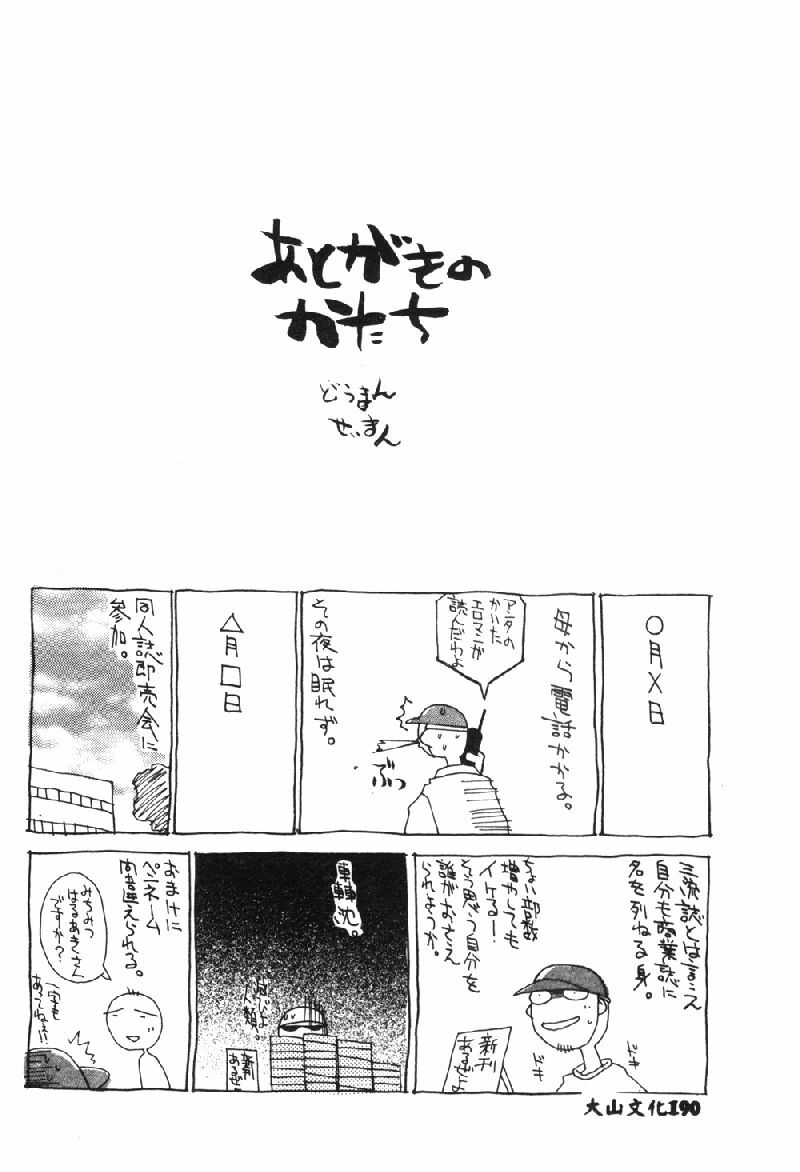 あとがきの
かたち
どうまん
せいまん
〇月×日
母から電話かかる。
アンタの
かいた
エロマンガ
読んだわよ
ぶっ
その夜は眠れず。
△月□日
同人誌即売会に
参加。
三流誌とは言え
自分も商業誌に
名を列ねる身。
ちょい部数
増やしても
イケるー!
という思う自分を
誰がおさえ
られようか。
新刊
あるぜよ
ドキ
ドキ
轟沈。
人類。
新刊
あるぜよ
おまけに
ペンネーム
間違えられる。
みちみつ
はるあきさん
ですか?
一字も
あってねぇ!!
大山文化190